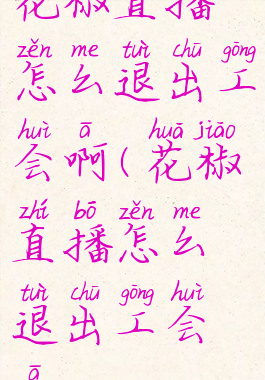 花椒直播
zěn me tuì chū gōng
怎么退出工
huì ā huā jiāo
会啊(花椒
zhí bō zěn me
直播怎么
tuì chū gōng huì
退出工会
ā